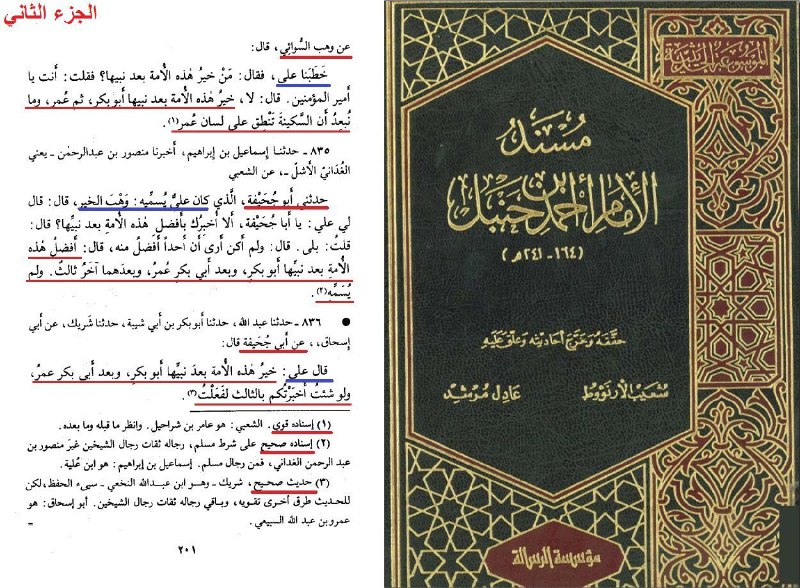 الجزء الثاني
عن وهب السُّوائي، قال:
خَطَبَنا علي، فقال: مَنْ خيرُ هٰذه الأمة بعد نبيها؟ فقلت: أنت يا
أمير المؤمنين. قال: لا، خيرُ هٰذه الأمة بعد نبيها أبو بكر، ثم عُمر، وما
نُبعِدُ أن السَّكينةَ تَنْطِق على لسان عُمر(١).
٨٣٥ ـ حدثنا إسماعيل بن إبراهيم، أخبرنا منصور بن عبدالرحمٰن ـ يعني
الغُدَانيَّ الأشلَّ ـ، عن الشعبي
حدثني أبو جُحَيفة، الَّذي كان عليٌّ يُسمِّيه: وَهْبَ الخير، قال: قال
لي علي: يا أبا جُحَيفة، ألا أُخبِرُك بأفضلِ هٰذه الأمةِ بعد نبيِّها؟ قال:
قلت: بلى. قال: ولم أكن أرى أن أحداً أفضلُ منه، قال: أفضلُ هٰذه
الأمةِ بعد نبيِّها أبو بكرٍ، وبعد أبي بكرٍ عُمرُ، وبعدهما آخَرُ ثالثٌ. ولم
يُسَمِّه(٢).
● ٨٣٦ ـ حدثنا عبد الله، حدثنا أبو بكر بن أبي شيبة، حدثنا شَريك، عن أبي
إسحاق، عن أبي جُحَيفة قال:
قال علي: خيرُ هٰذه الأمة بعدَ نبيِّها أبو بكرٍ، وبعد أبي بكر عمرُ،
ولو شئتُ أخبَرْتُكم بالثالث لفَعَلْتُ(٣).
(١) إسناده قوي. الشعبي: هو عامر بن شراحيل. وانظر ما قبله وما بعده.
(٢) إسناده صحيح على شرط مسلم، رجاله ثقات رجال الشيخين غيرَ منصور بن
عبد الرحمن الغداني، فمن رجال مسلم. إسماعيل بن إبراهيم: هو ابن عُلية.
(٣) حديث صحيح، شريك ـ وهو ابن عبدالله النخعي ـ سيىء الحفظ، لكن
للحديث طرق أخرى تقويه، وباقي رجاله ثقات رجال الشيخين. أبو إسحاق: هو
عمرو بن عبد الله السبيعي.
٢٠١
مُسْنَدُ
الإمام أحمد بن حنبل
(١٦٤ ـ ٢٤١ هـ)
حقّقَهُ وَخَرّجَ أحَاديثه وَعَلّق عَلَيه
شعَيب الأرنؤوط
عَادل مُرشد
مؤسسة الرسالة